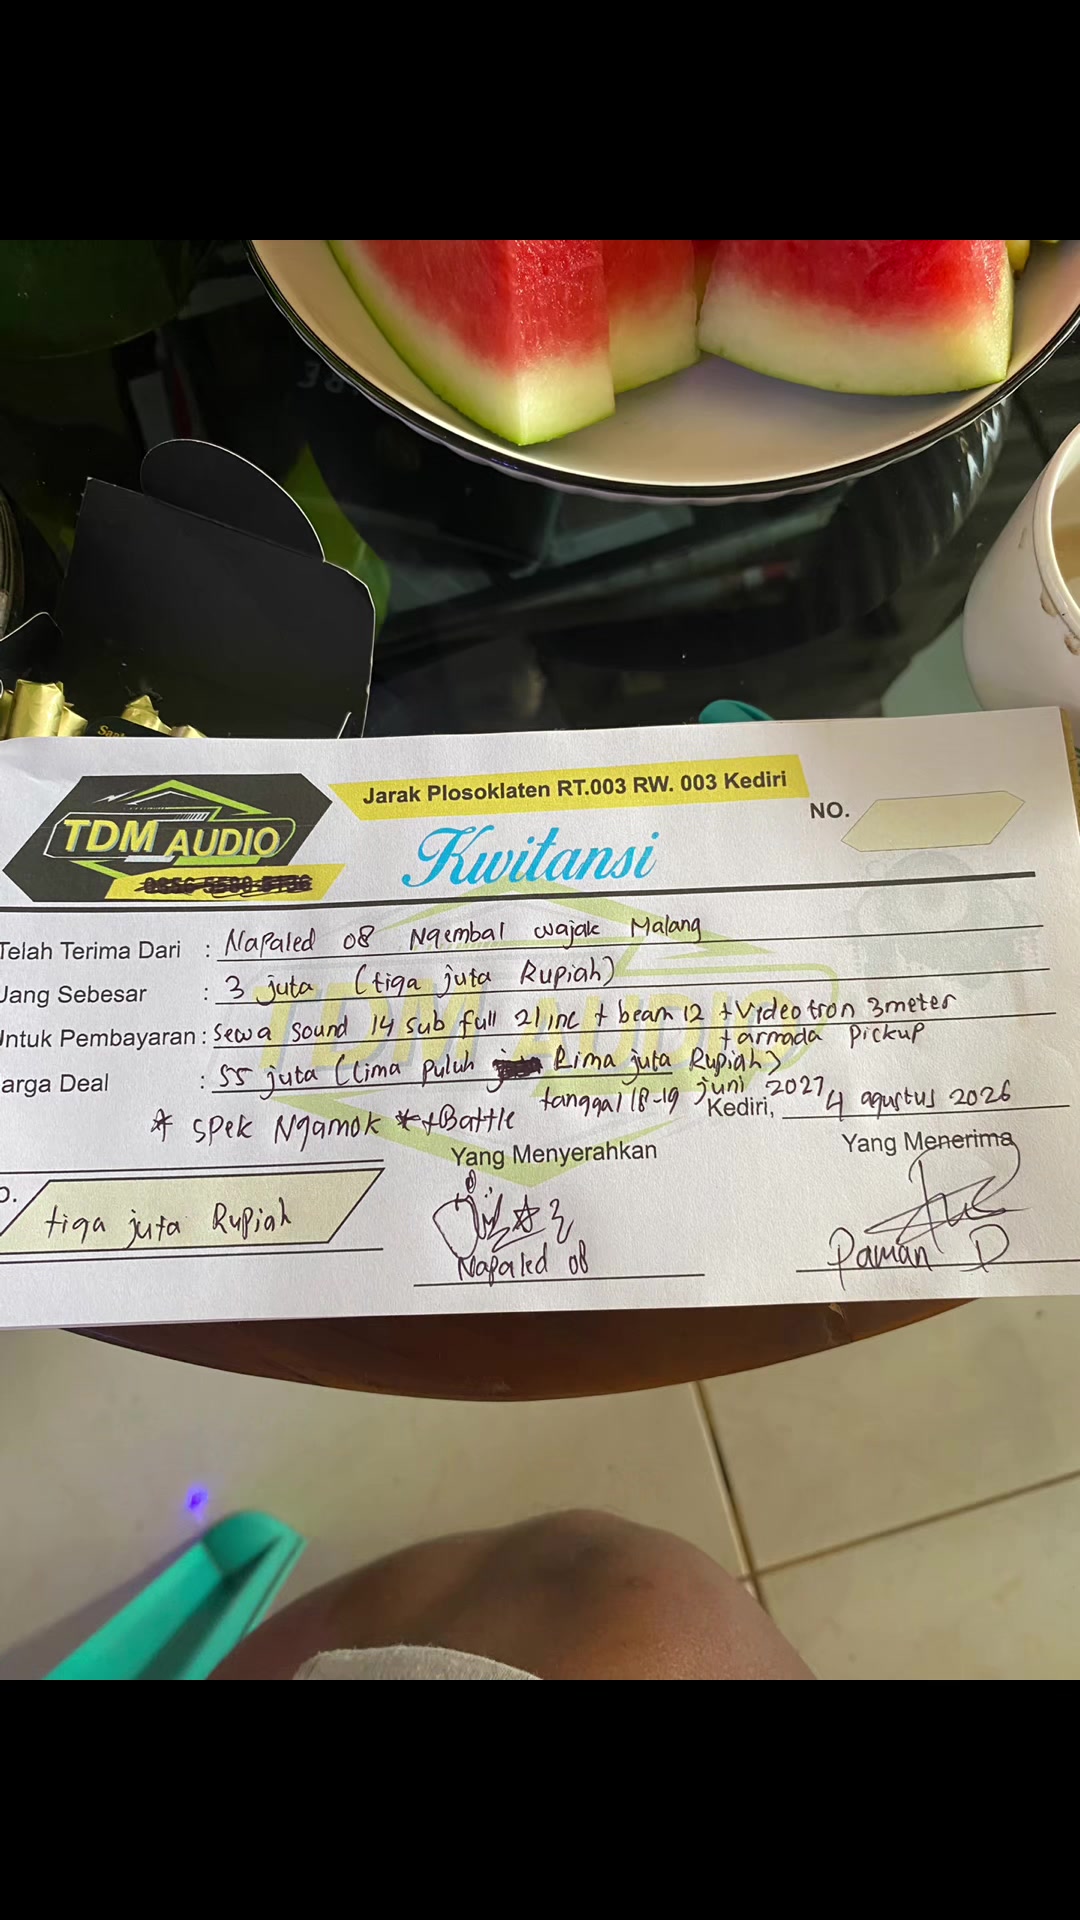 Jarak Plosoklaten RT.003 RW. 003 Kediri
NO.
TDM AUDIO
Kwitansi
Telah Terima Dari : Napaled 08 Ngembal wajak Malang
Uang Sebesar : 3 juta (tiga juta Rupiah)
Untuk Pembayaran : Sewa sound 14 sub full 21 inc + beam 12 + Videotron 3meter
+ armada pickup
arga Deal : 55 juta (Lima puluh Lima juta Rupiah)
tanggal 18-19 juni 2027
Kediri, 4 agustus 2026
* spek Ngamok * + Battle
Yang Menyerahkan
Yang Menerima
tiga juta Rupiah
Napaled 08
Paman D